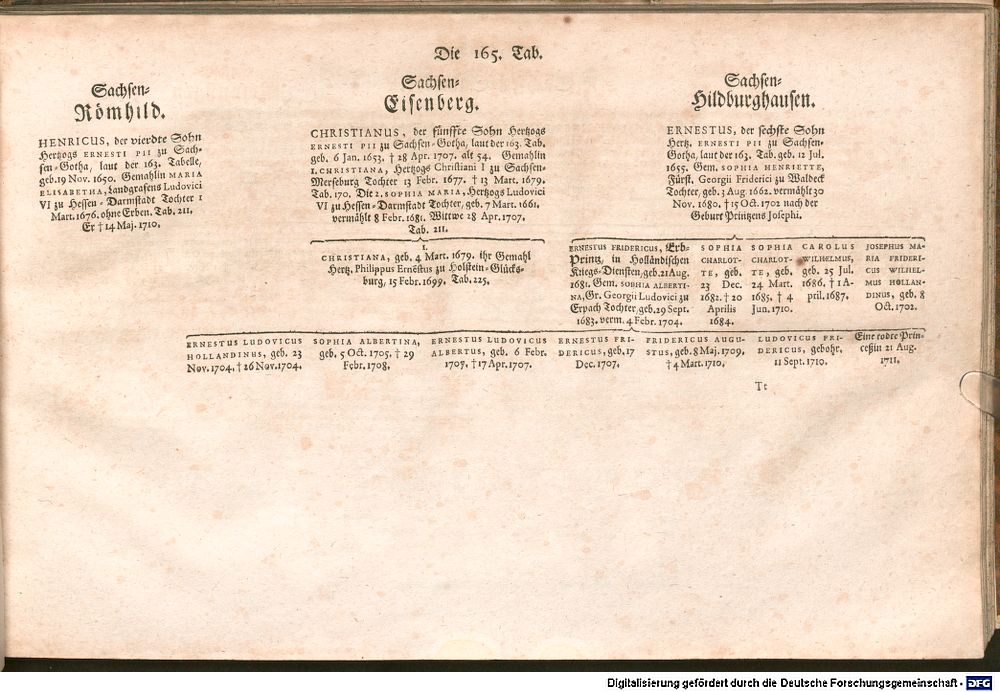 Die 165. Tab.
Sachsen-
Römhild.
HENRICUS, der vierdte Sohn
Hertzogs ERNESTI PII zu Sach-
sen-Gotha, laut der 163. Tabelle,
geb. 19 Nov. 1650. Gemahlin MARIA
ELISABETHA, Landgrafens Ludovici
VI zu Hessen-Darmstadt Tochter 1
Mart. 1676. ohne Erben. Tab. 211.
Er † 14 Maj. 1710.
Sachsen-
Eisenberg.
CHRISTIANUS, der fünffte Sohn Hertzogs
ERNESTI PII zu Sachsen-Gotha, laut der 163. Tab.
geb. 6 Jan. 1653. † 28 Apr. 1707. alt 54. Gemahlin
1. CHRISTIANA, Hertzogs Christiani I zu Sachsen-
Merseburg Tochter 13 Febr. 1677. † 13 Mart. 1679.
Tab. 170. Die 2. SOPHIA MARIA, Hertzogs Ludovici
VI zu Hessen-Darmstadt Tochter, geb. 7 Mart. 1661.
vermählt 8 Febr. 1681. Wittwe 28 Apr. 1707.
Tab. 211.
1.
CHRISTIANA, geb. 4 Mart. 1679. ihr Gemahl
Hertz. Philippus Ernestus zu Holstein-Glücks-
burg, 15 Febr. 1699. Tab. 225.
Sachsen-
Hildburghausen.
ERNESTUS, der sechste Sohn
Hertz. ERNESTI PII zu Sachsen-
Gotha, laut der 163. Tab. geb. 12 Jul.
1655. Gem. SOPHIA HENRIETTE,
Fürst. Georgii Friderici zu Waldeck
Tochter, geb. 3 Aug. 1662. vermählt 30
Nov. 1680. † 15 Oct. 1702 nach der
Geburt Printzens Josephi.
ERNESTUS FRIDERICUS, Erb-
Printz, in Holländischen
Kriegs-Diensten, geb. 21 Aug.
1681. Gem. SOPHIA ALBERTI-
NA, Gr. Georgii Ludovici zu
Erpach Tochter, geb. 29 Sept.
1683. verm. 4 Febr. 1704.
SOPHIA
CHARLOT-
TE, geb.
23 Dec.
1682. † 20
Aprilis
1684.
SOPHIA
CHARLOT-
TE, geb.
24 Mart.
1685. † 4
Jun. 1710.
CAROLUS
WILHELMUS,
geb. 25 Jul.
1686. † 1 A-
pril. 1687.
JOSEPHUS MA-
RIA FRIDERI-
CUS WILHEL-
MUS HOLLAN-
DINUS, geb. 8
Oct. 1702.
ERNESTUS LUDOVICUS
HOLLANDINUS, geb. 23
Nov. 1704. † 26 Nov. 1704.
SOPHIA ALBERTINA,
geb. 5 Oct. 1705. † 29
Febr. 1708.
ERNESTUS LUDOVICUS
ALBERTUS, geb. 6 Febr.
1707. † 17 Apr. 1707.
ERNESTUS FRI-
DERICUS, geb. 17
Dec. 1707.
FRIDERICUS AUGU-
STUS, geb. 8 Maj. 1709.
† 4 Mart. 1710.
LUDOVICUS FRI-
DERICUS, gebohr.
11 Sept. 1710.
Eine todte Prin-
ceßin 21 Aug.
1711.
Tt
Digitalisierung gefördert durch die Deutsche Forschungsgemeinschaft - DFG